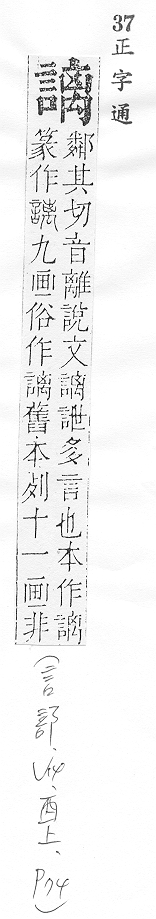 37 正字通
謧
鄰其切音離說文謧詍多言也本作謧
篆作謧九画俗作謧舊本列十一画非
(言部、酉上、P74)